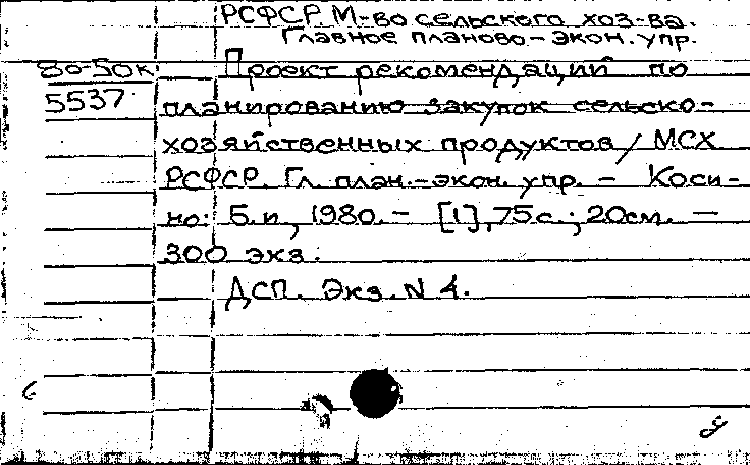 РСФСР. М-во сельского хоз-ва.
Главное планово-экон. упр.
80-50к
5537
Проект рекомендаций по
планированию закупок сельско-
хозяйственных продуктов / МСХ
РСФСР. Гл. план.-экон. упр. - Коси-
но: Б.и, 1980. - [1], 75с.; 20см. -
300 экз.
ДСП. Экз. N 4.